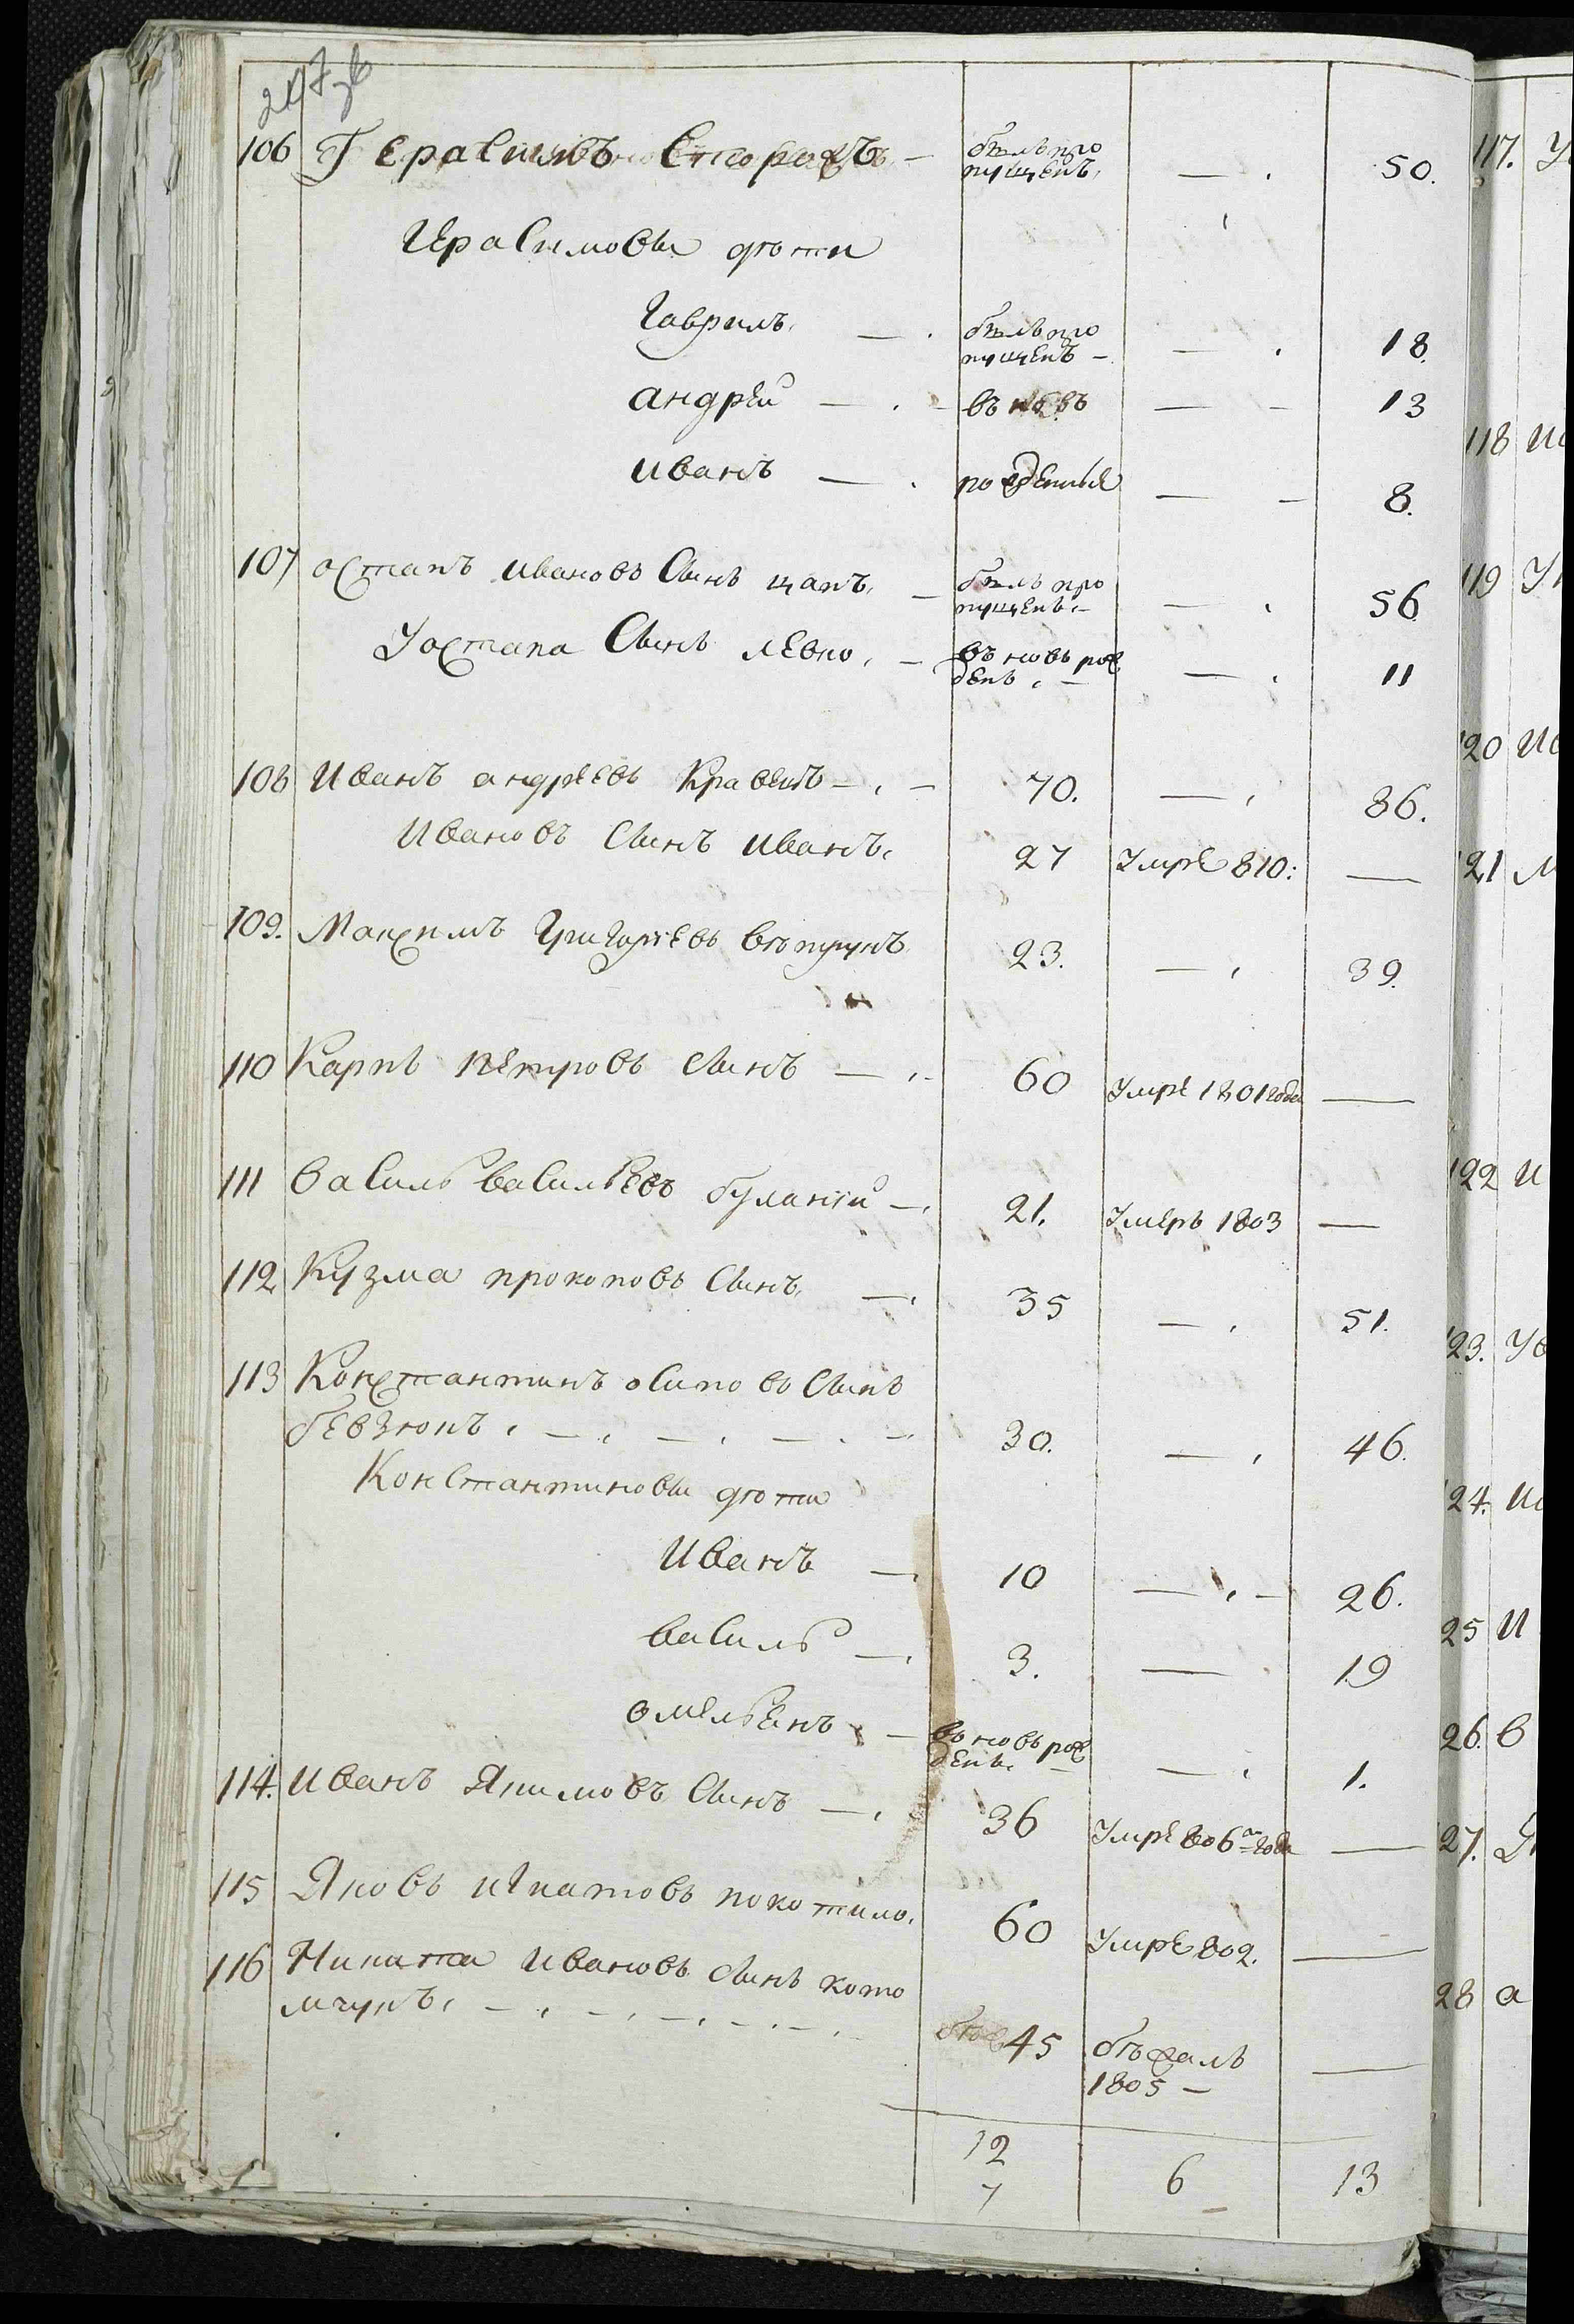 247 зв
106 Герасимъ Сторожъ — былъ про
пущенъ, — 50.
Герасимовы дѣти
Гаврилъ, — былъ про
пущенъ — — 18.
андрей — въ новъ — — 13
иванъ — рожденные — — 8.
107 остапъ ивановъ Сынъ цапъ, — былъ про
пущенъ, — — 56
У остапа Сынъ левко, — въ новъ рож
денъ, — — 11
108 Иванъ андрѣевъ Кравецъ — 70. — 86.
Ивановъ Сынъ иванъ, 27 Умре 810: —
109. Максимъ Григорьевъ 23. — 39.
110 Карпъ Петровъ Сынъ — 60 Умре 1801 года —
111 Василь васильевъ буланій — 21. Умеръ 1803 —
112 Кузма прокоповъ Сынъ, — 35 — 51.
113 Константинъ осиповъ Сынъ
— — — — 30. — 46.
Константиновы дѣти
Иванъ — 10 — — 26.
василь — 3. — 19
омельянъ, — въ новъ рож
денъ, — — 1.
114. иванъ Якимовъ Сынъ — 36 Умре 806 го года —
115 Яковъ игнатовъ покотило, 60 Умре 802. —
116 Никита ивановъ Сынъ
— — — — — 45 бѣжалъ
1805 — —
12 6 13
7
117. У
118 Ив
119 У
120 Ив
121 М
122 И
123. Ув
124. Ив
25 И
26. в
27. Як
28 а